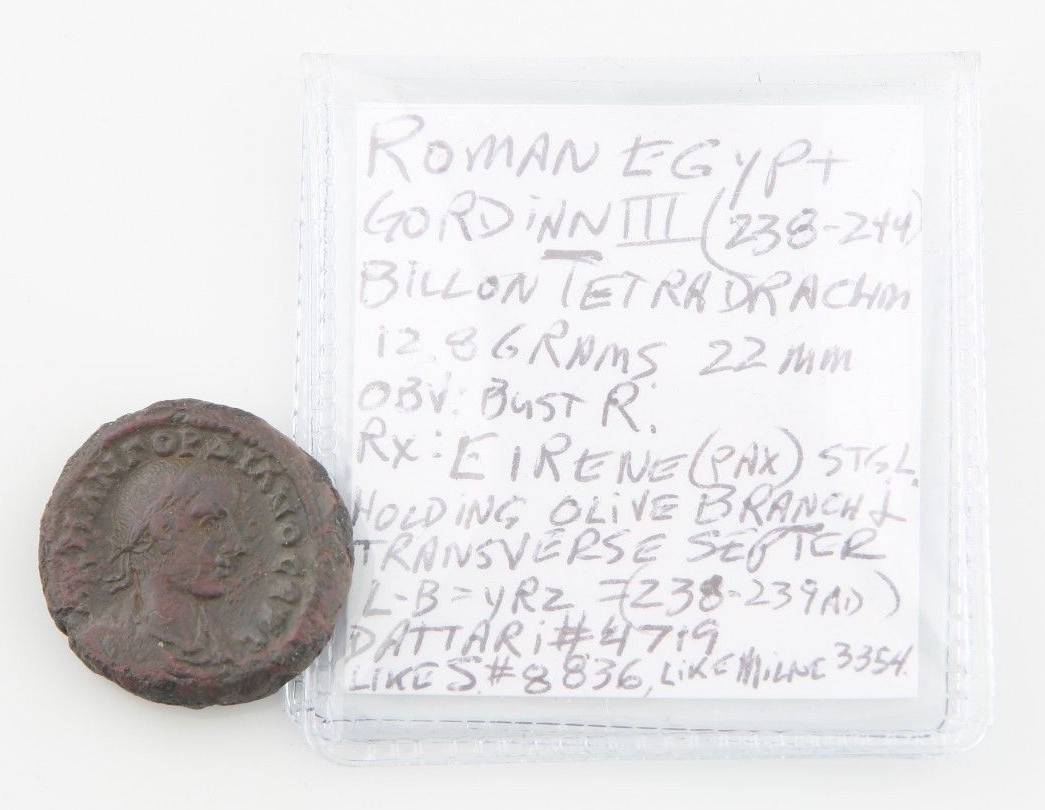 ROMAN EGYPT
GORDiNN III (238-244)
BILLON TETRADRACHM
12.8 GRAMS. 22 mm
OBV: BUST R.
Rx: EIRENE (PAX) STG L.
HOLDING OLIVE BRANCH &
TRANSVERSE SEPTER
L-B = YR2 = (238-239 AD)
DATTARI #4719
LIKE S. #8836, LIKE MILNE 3354.
ΓΟΡΔΙΑΝΟC